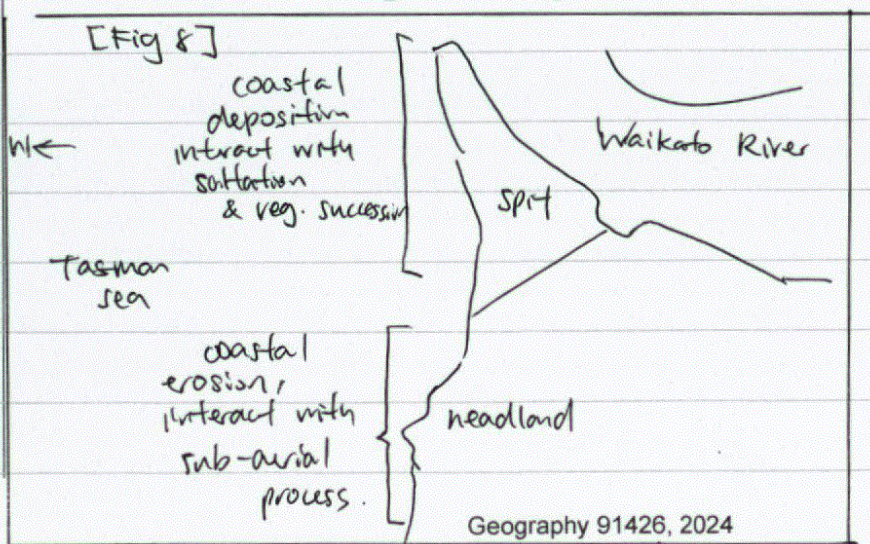 [Fig 8]
coastal
deposition
interact with
saltation
& veg. succession
N←
Waikato River
spit
Tasman
sea
coastal
erosion,
interact with
sub-aerial
process.
headland
Geography 91426, 2024